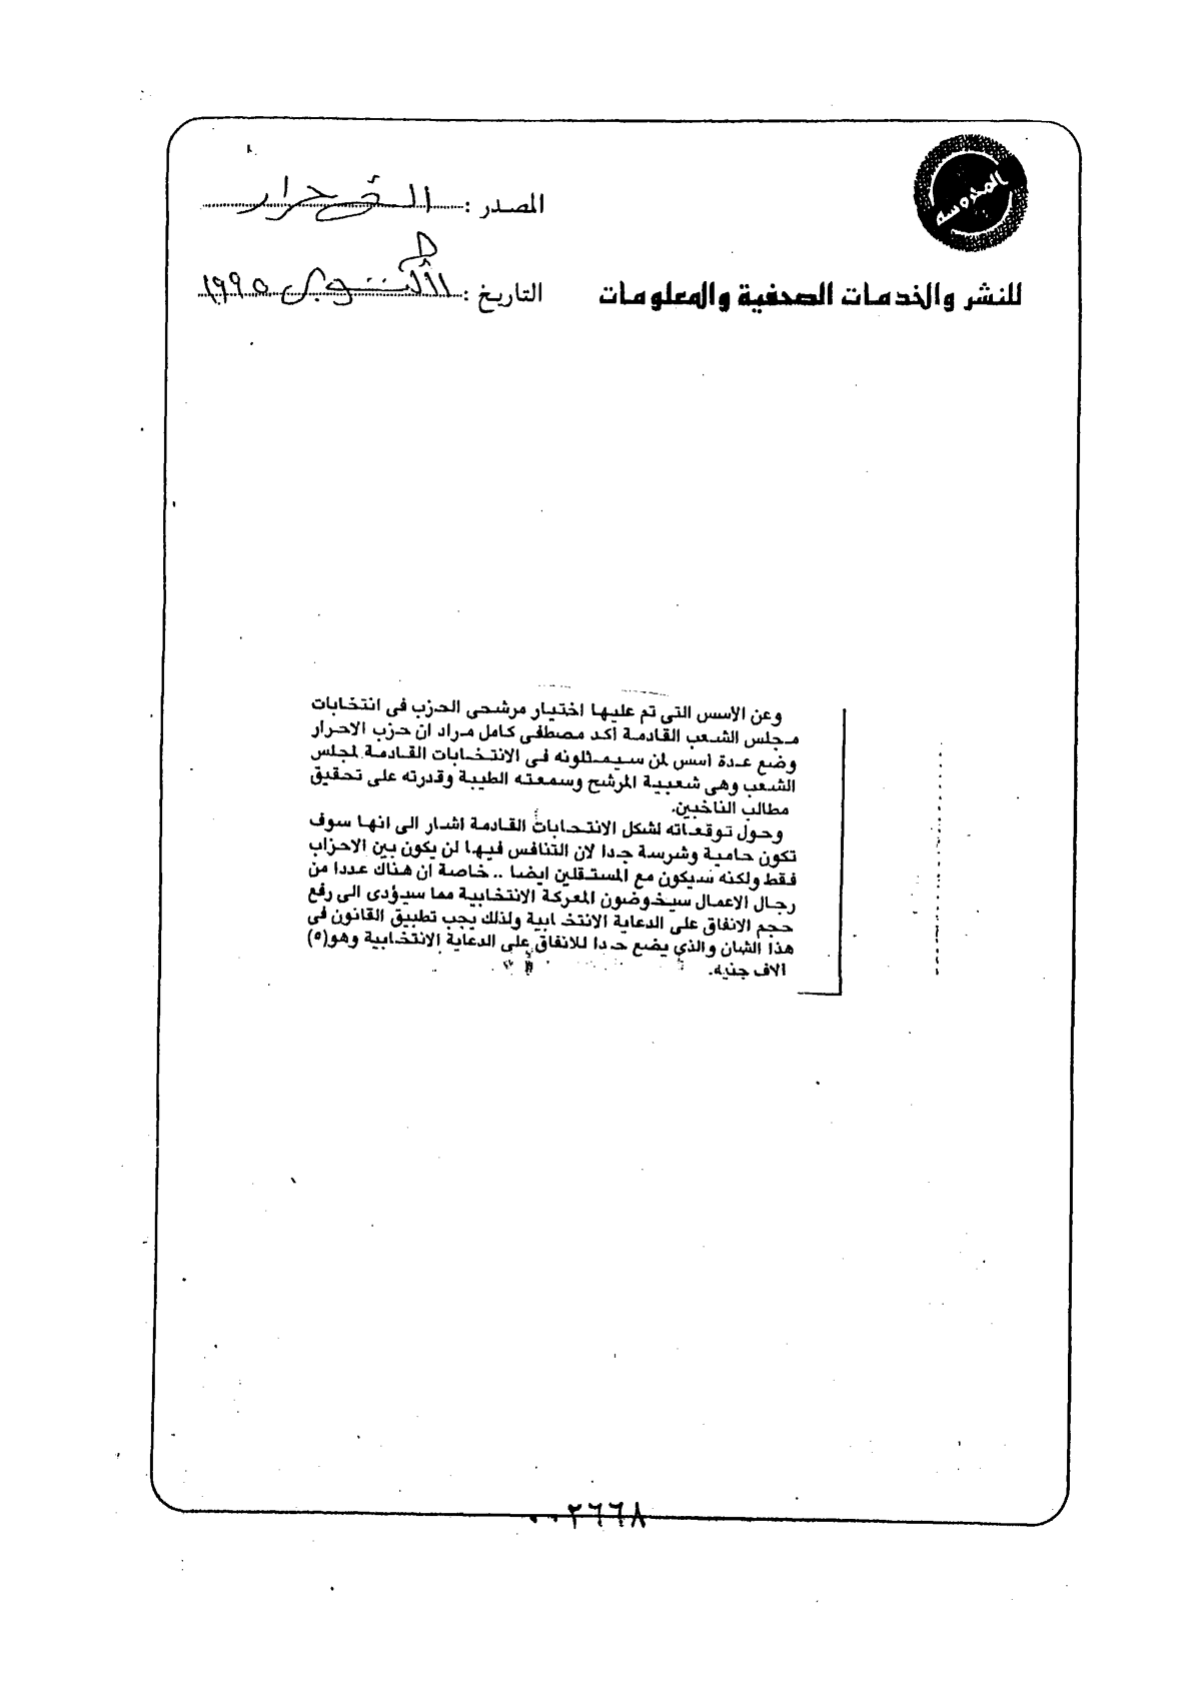 المحروسه
المصدر : الأحرار
للنشر والخدمات الصحفية والمعلومات
التاريخ : أكتوبر ١٩٩٥
وعن الاسس التى تم عليها اختيار مرشحى الحزب فى انتخابات
مجلس الشعب القادمة أكد مصطفى كامل مراد ان حزب الاحرار
وضع عدة أسس لمن سيمثلونه فى الانتخابات القادمة لمجلس
الشعب وهى شعبية المرشح وسمعته الطيبة وقدرته على تحقيق
مطالب الناخبين.
وحول توقعاته لشكل الانتخابات القادمة اشار الى انها سوف
تكون حامية وشرسة جدا لان التنافس فيها لن يكون بين الاحزاب
فقط ولكنه سيكون مع المستقلين ايضا .. خاصة ان هناك عددا من
رجال الاعمال سيخوضون المعركة الانتخابية مما سيؤدى الى رفع
حجم الانفاق على الدعاية الانتخابية ولذلك يجب تطبيق القانون فى
هذا الشان والذي يضع حدا للانفاق على الدعاية الانتخابية وهو(٥)
آلاف جنيه.
٠٠٢٦٦٨